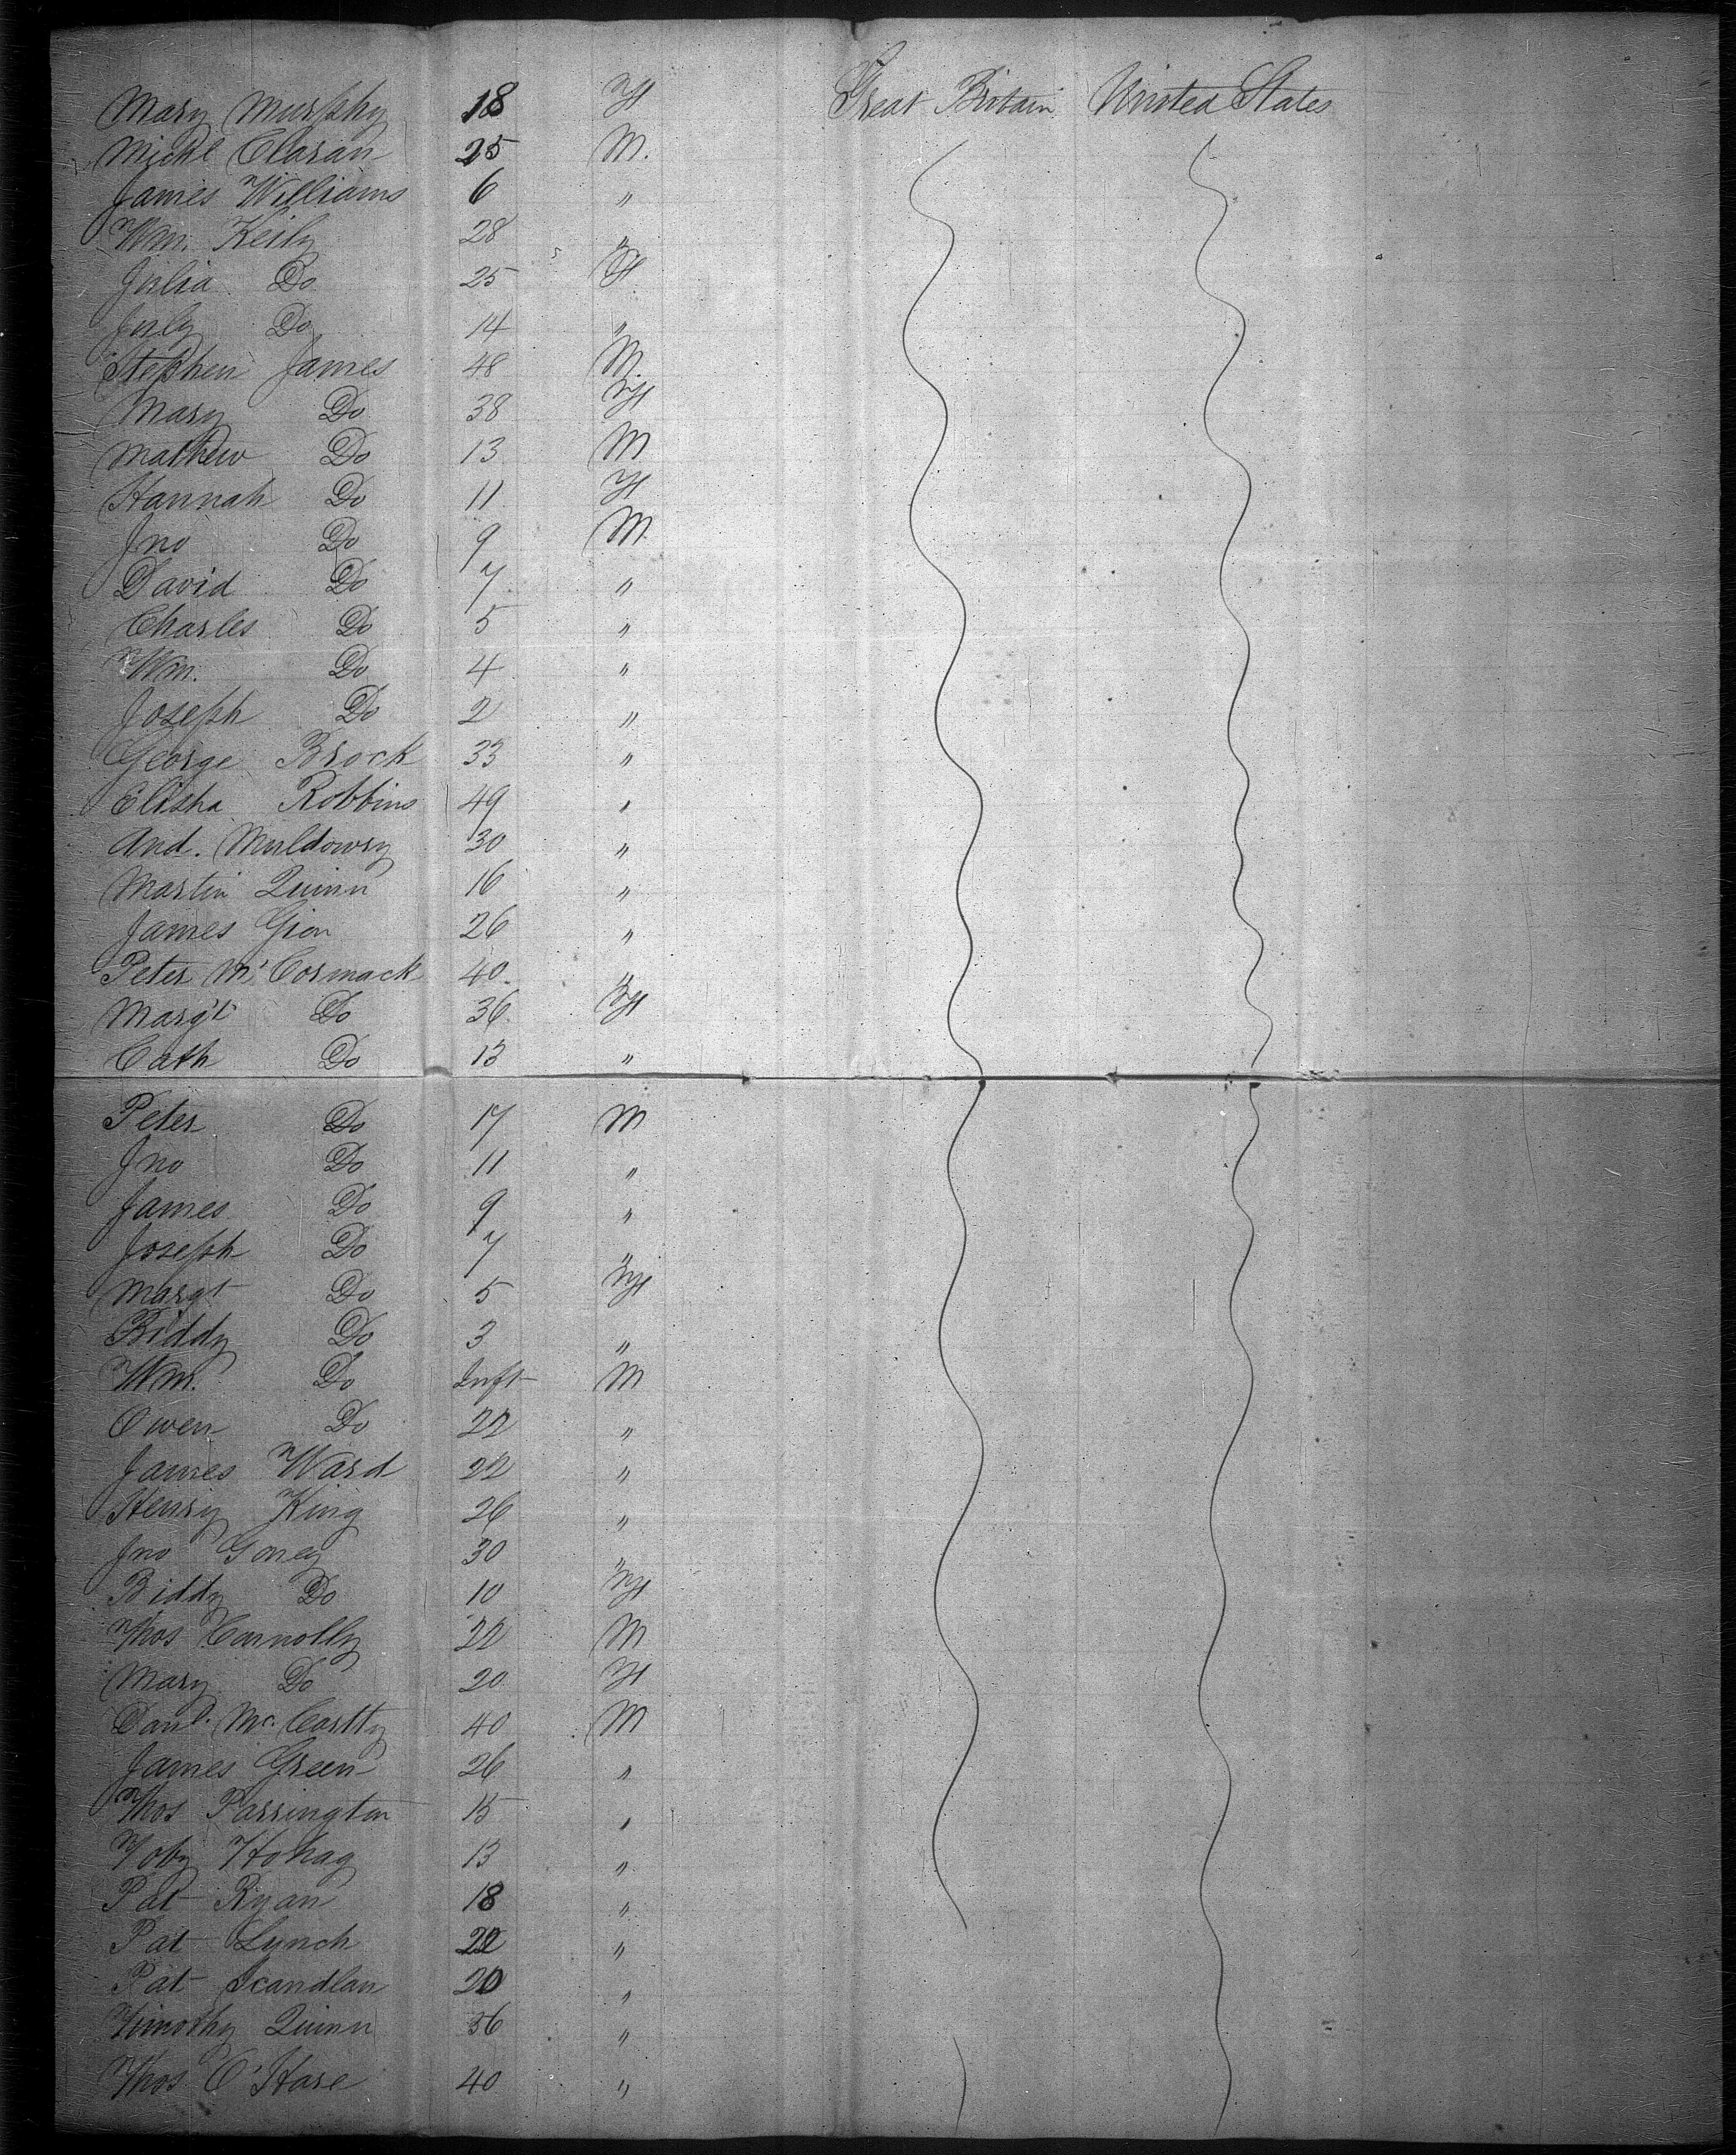 Mary Murphy 18 F Great Britain United States
Michl Claran 25 M.
James Williams 6 "
Wm. Keily 28 "
Julia Do 25 F
July Do 14 "
Stephen James 48 M.
Mary Do 38 F
Mathew Do 13 M
Hannah Do 11 F
Jno Do 9 M.
David Do 7 "
Charles Do 5 "
Wm. Do 4 "
Joseph Do 2 "
George Brock 33 "
Elisha Robbins 49 "
And. Muldowry 30 "
Martin Quinn 16 "
James Gion 26 "
Peter Mc Cormack 40. "
Marg't Do 36 F
Cath Do 13 "
Peter Do 17 M
Jno Do 11 "
James Do 9 "
Joseph Do 7 "
Margt Do 5 F
Biddy Do 3 "
Wm. Do Inft M
Owen Do 22 "
James Ward 22 "
Henry King 26 "
Jno Goney 30 "
Biddy Do 10 F
Thos Connolly 22 M
Mary Do 20 F
Danl. Mc. Cartty 40 M
James Green 26 "
Thos Parrington 15 "
Toby 13 "
Pat Ryan 18 "
Pat Lynch 22 "
Pat Scandlan 20 "
Timothy Quinn 36 "
Thos O'Hare 40 "